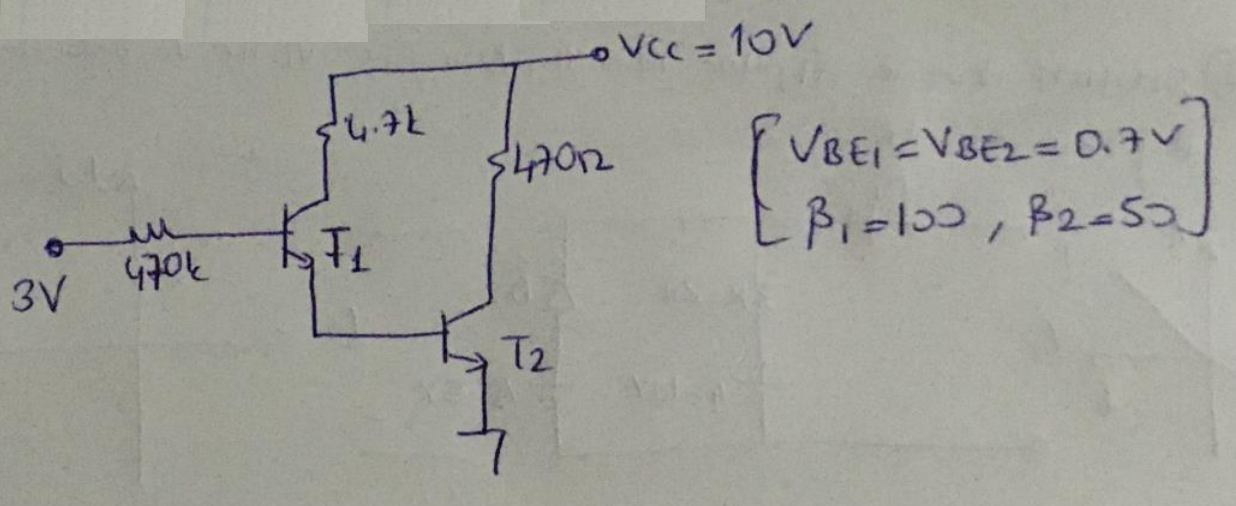 VCC = 10V
4.7k
470Ω
[VBE1 = VBE2 = 0.7V
β1 = 100 , β2 = 50]
T1
470k
3V
T2